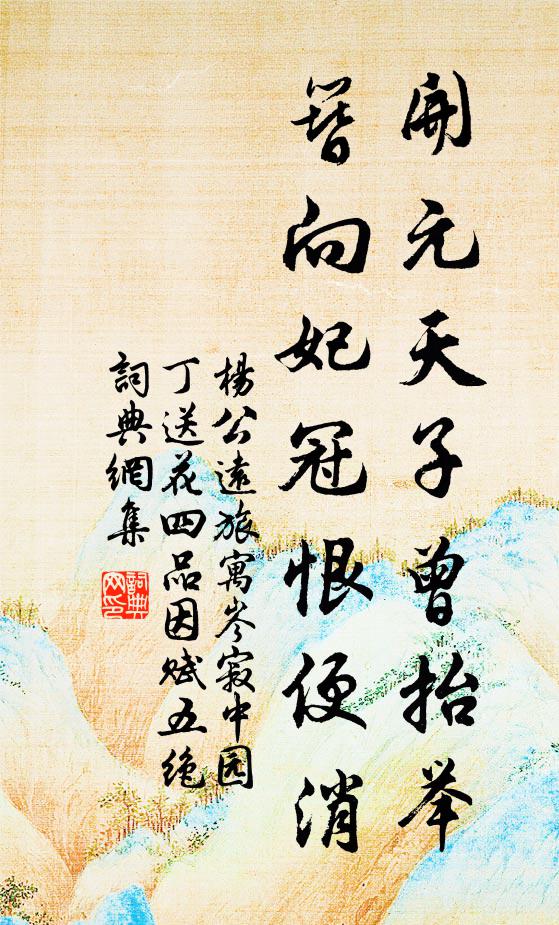 開元天子曾抬举
簪向妃冠恨便消
楊公遠旅寓岑寂中园
丁送花四品因赋五绝
詞典網集
詞典
网印